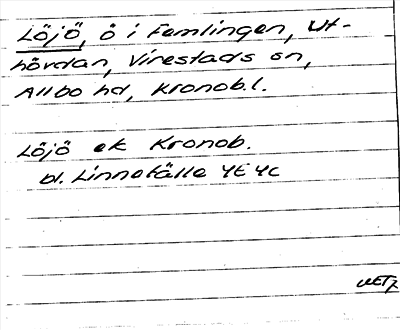 Löjö, ö i Femlingen, Ut-
hövdan, Virestads sn,
Allbo hd, Kronob.l.
Löjö ek Kronob.
bl. Linnefälle 4E 4c